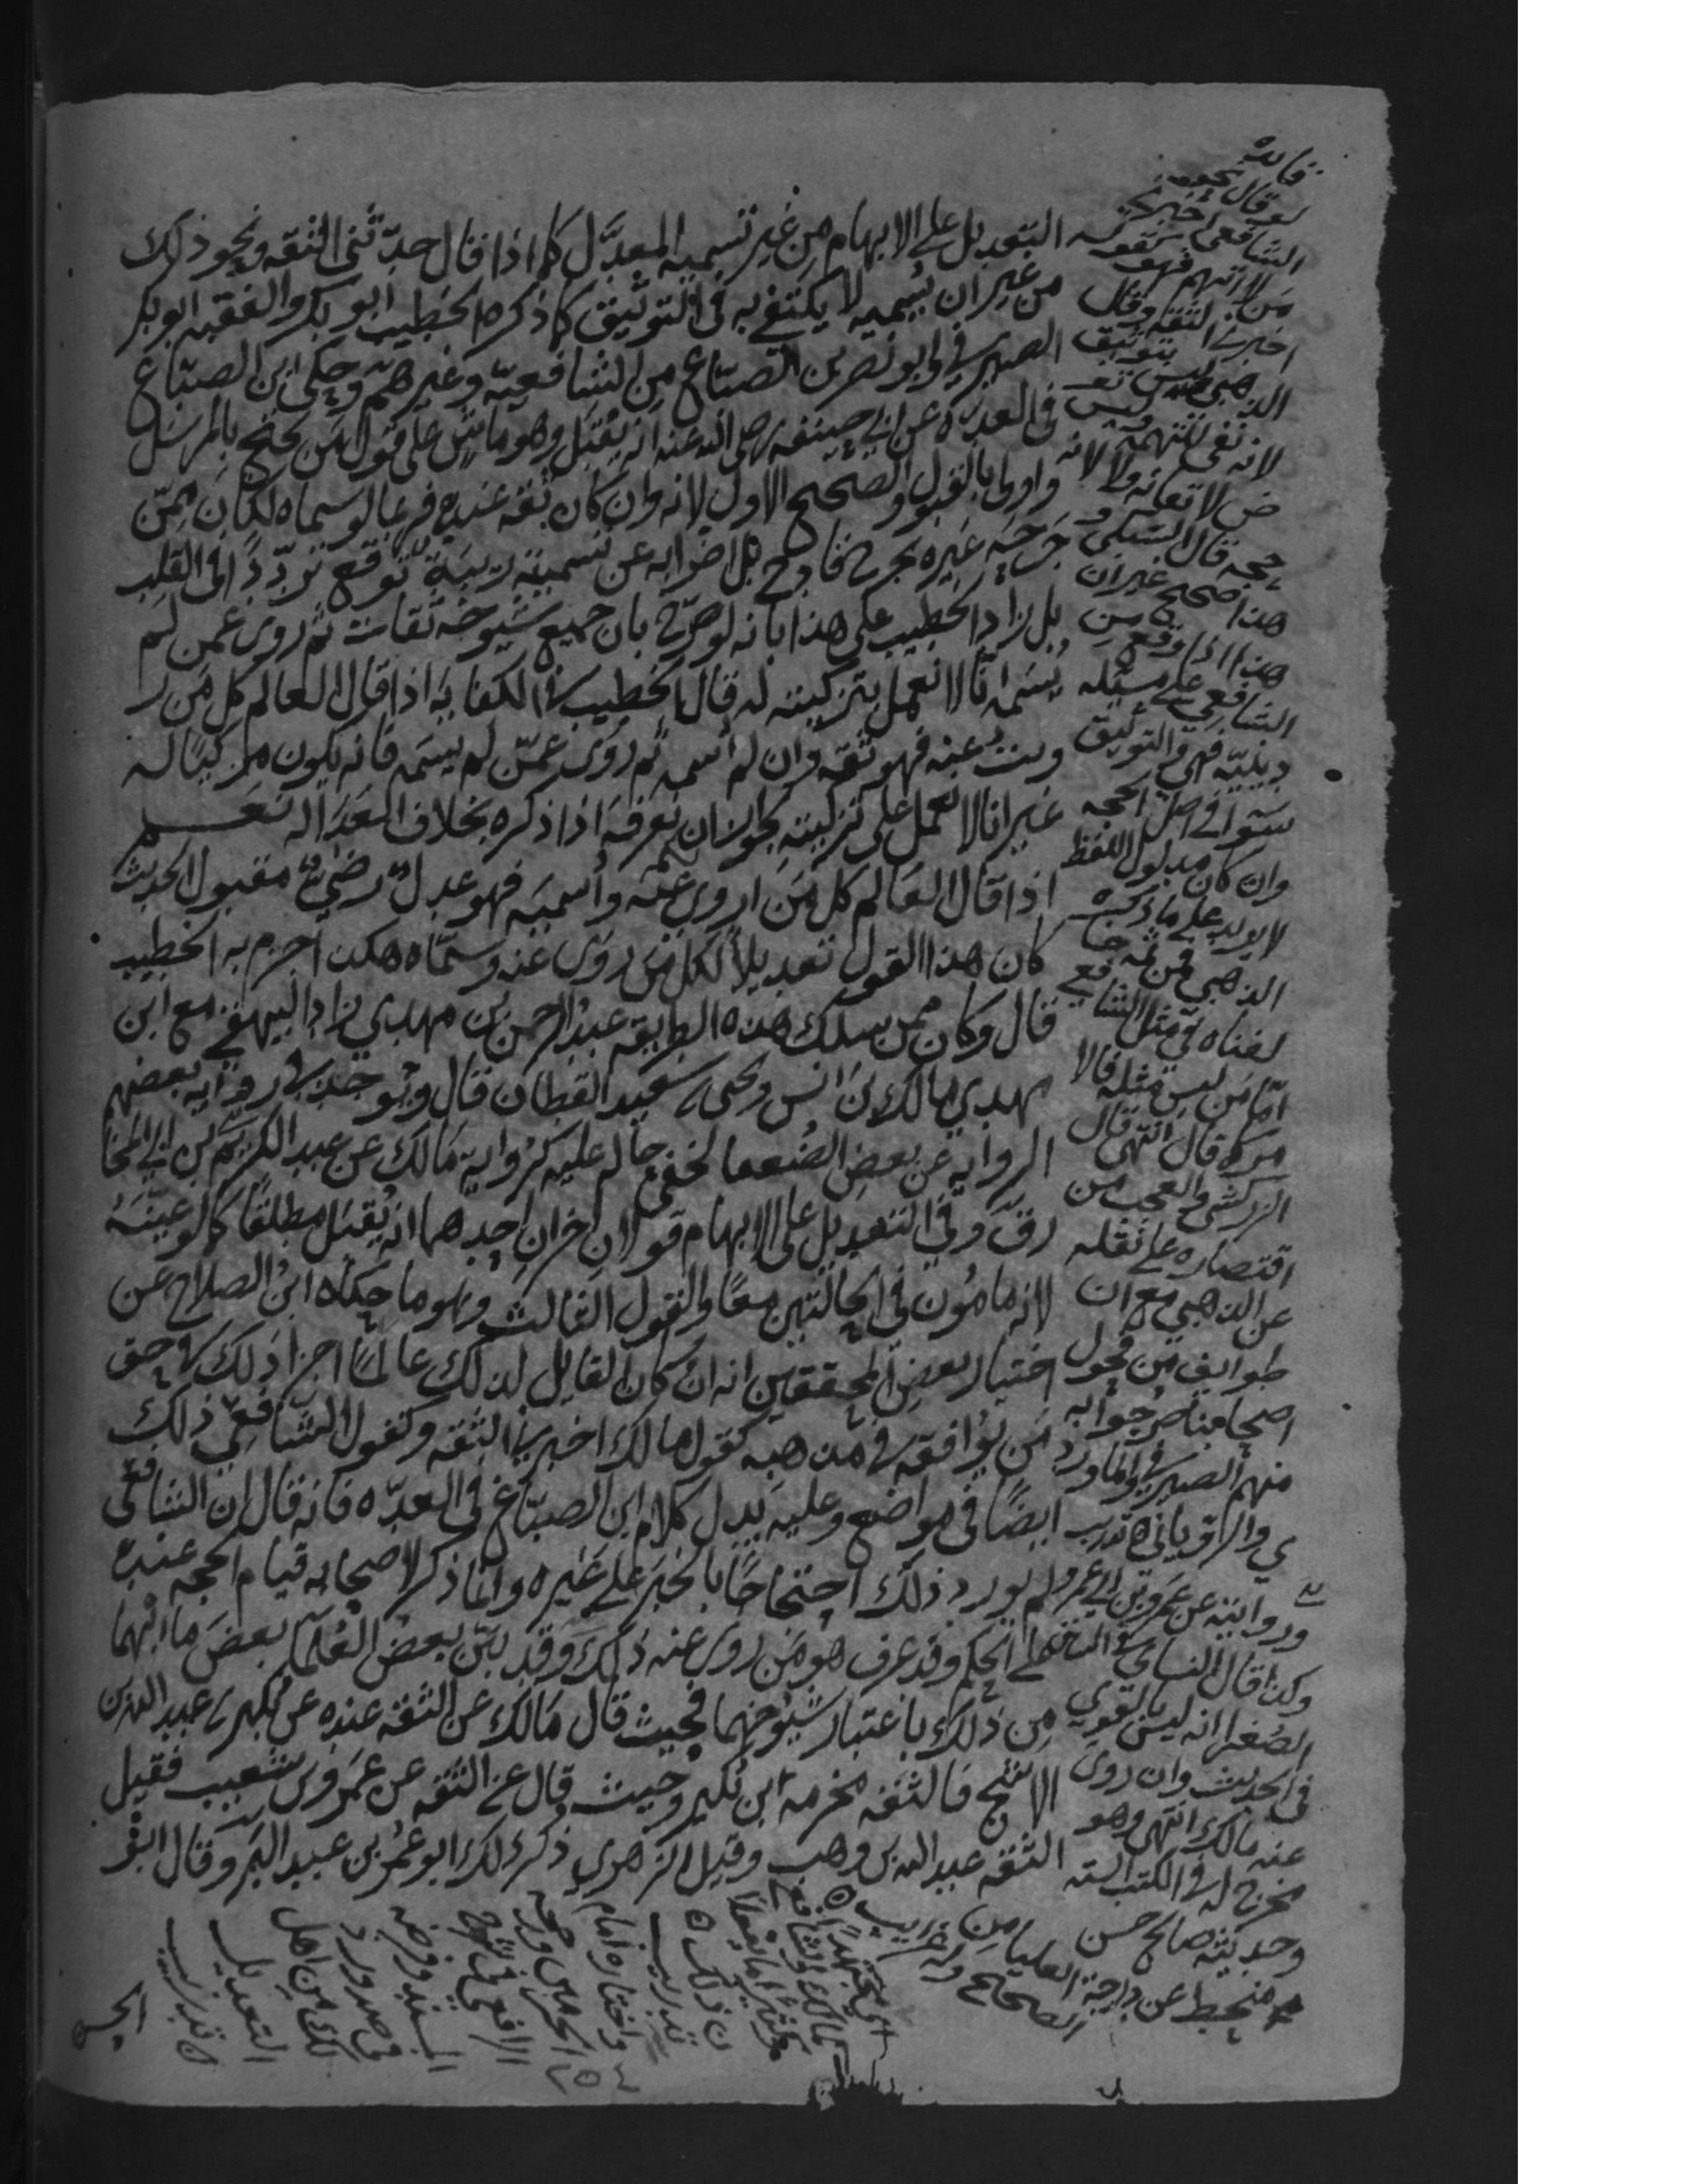 التعديل على الابهام من غير تسمية المعدَّل كما اذا قال حدّثنى الثقه ونحو ذلك
من غير ان يسميه لا يكتفى به فى التوثيق كما ذكره الخطيب ابو بكر والفقيه ابو بكر
الصيرفي وابو نصر بن الصبّاغ من الشافعيّة وغيرهم وحكى ابن الصبّاغ
فى العدّه عن ابي حنيفه رضى الله عنه انه يُقبَل وهو ماشٍ على قول من يحتج بالمرسَل
واولى بالقبول والصحيح الاول لانه وان كان ثقه عنده فربما لو سماه لكان ممّن
جرحه غيره بجرح قادح بل اضرابه عن تسميته ريبَة توقع تردّدًا فى القلب
بل زاد الخطيب على هذا بانه لو صرّح بان جميع شيوخه ثقات ثم روى عمن لم
يُسَمه انّا لا نعمل بتزكيته له قال الخطيب فى الكفايه اذا قال العالم كل من ر
ويت عنه فهو ثقه وان لم اسمه ثم روى عمّن لم يسَمه فانه يكون مزكيًا له
غير انا لا نعمل على تزكيته لجواز ان نعرفه اذا ذكره بخلاف العدَالة نعم
اذا قال العالم كل مَن اروى عنه وأسميه فهو عدل رضىً مقبول الحديث
كان هذا القول تعديلاً لكل من روى عنه وسمّاه هكذا جزم به الخطيب
قال وكان ممن سلك هذه الطريقه عبد الرحمن بن مهدى زاد البيهقي مع ابن
مهدي مالك بن انس ويحيى بن سعيد القطان قال ويُوجد فى رواية بعضهم
الروايه عن بعض الضُعفا لخفي حاله عليه كرواية مَالك عن عبد الكريم بن ابي المخا
رق وفي التعديل على الابهام قولان اخران احدهما انه يُقبَل مطلقًا كما لو عيّنه
لانه مامُون فى الحالتين معًا والقول الثالث وهو ما حكاه ابن الصلاح عن
اختيار بعض المحققين انه ان كان القايل لذلك عالمًا اجزا ذلك فى حق
من يوافقه فى مذهبه كقول مالك اخبرني الثقه وكقول الشافعي ذلك
ايضًا فى مواضع وعليه يدل كلام ابن الصبّاغ فى العدّه فانه قال ان الشافعى
لم يورد ذلك احتجاجًا بالخبر على غيره وانما ذكر لاصحابه قيام الحجه عنده
على الحكم وقد عرف هو من روى عنه ذلك وقد بيّن بعض العُلمآ بعض ما ابهما
من ذلك باعتبار شيوخهما فحيث قال مَالك عن الثقه عنده عن بُكير بن عبد الله بن
الاشج فالثقه مخرمه ابن بُكير وحيث قال عن الثقه عن عمَرو بن شعيب فقيل
الثقه عبد الله بن وهب وقيل الزهري ذكر ذلك ابو عُمر بن عبد البر وقال ابو
الحسن
فايده
لو قال نحو
الشافعى اخبرنى
من لا اتهم فهو
كقوله اخبرني الثقه وقال
الذهبي ليس بتوثيق
لانه نفى للتهمه وليس
حجه قال السبكى و
هذا صحيح غير ان
هذا اذا وقع من
الشافعي على مسئله
دينيّه فهي والتوثيق
سَوا فى اصل الحجه
وان كان مدلول اللفظ
لا يزيد على ما ذكره
الذهبي فمن ثمه خا
لفناه فى مثل الشافعي
امّا من ليس مثله فالا
مر كما قال انتهى قال
الزركشى والعجب من
اقتصاره على نقله
عن الذهبي مع ان
طوايف من فحول
اصحابنا صرحوا به
منهم الصيرفي والماورد
ي والرويانى ه تدريب
وروايته عن عمرو بن ابى عمرو
وكذا قال النسائي
الضعفا انه ليس بالقوي
فى الحديث وان روى
عنه مالك انتهى وهو
مخرج له فى الكتب السته
وحديثه صالح حسن
منحط عن درجة العليا من
الصحيح
اى مجتهدا
كمالك والشافعى
وكثيرًا ما يفعلا
ن ذلك ه
تدريب
واختاره امام
الحرمين ورجحه
الرافعى فى شرح
المسند وفرضه
فى صدور
ذلك من اهل
التعديل
ه تدريب
٢٥٤